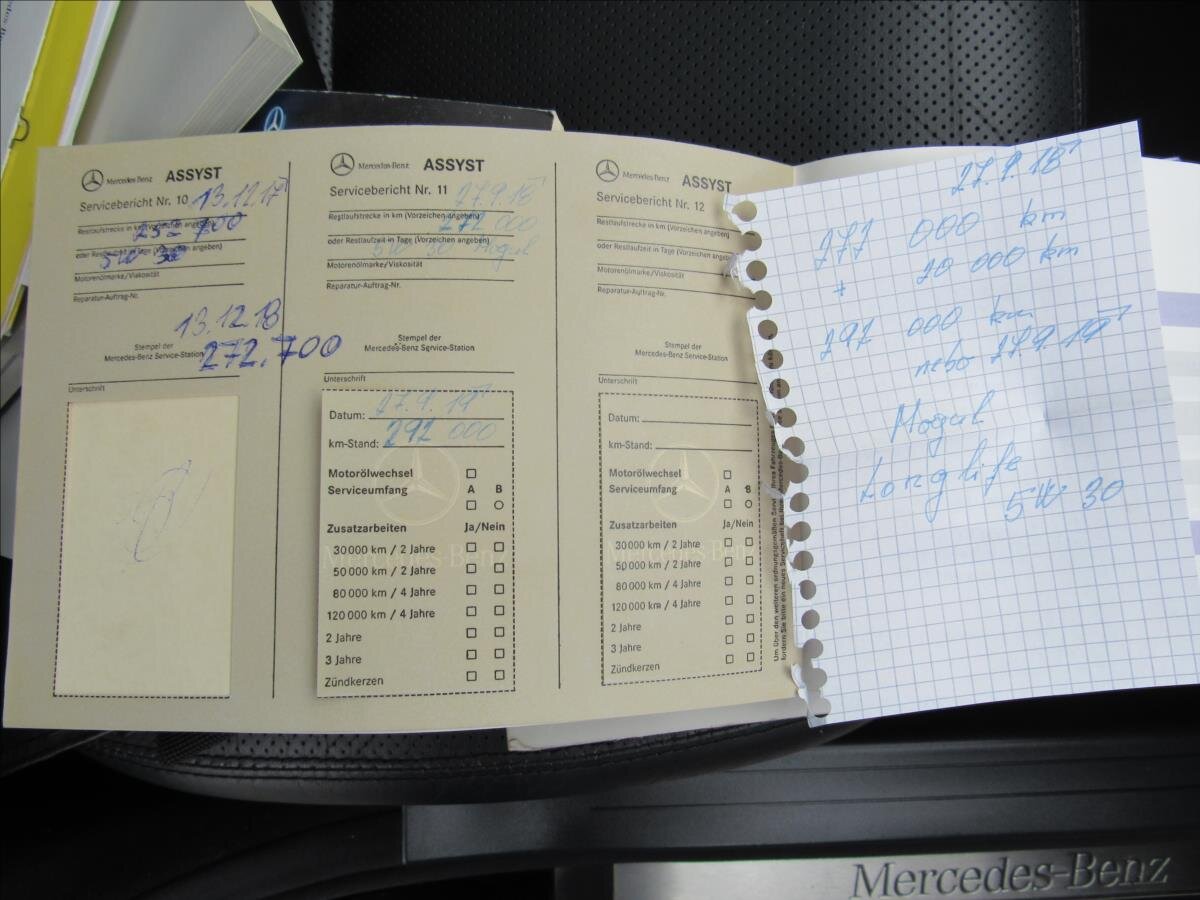 Mercedes-Benz ASSYST
Servicebericht Nr. 10 13.12.17
Restlaufstrecke in km (Vorzeichen angeben)
252 700
oder Restlaufzeit in Tage (Vorzeichen angeben)
5W 30
Motorenölmarke/Viskosität
Reparatur-Auftrag-Nr.
13.12.18
Stempel der
Mercedes-Benz Service-Station
272.700
Unterschrift
Mercedes-Benz ASSYST
Servicebericht Nr. 11 27.9.18
Restlaufstrecke in km (Vorzeichen angeben)
272 000
oder Restlaufzeit in Tage (Vorzeichen angeben)
5W 30 Mogul
Motorenölmarke/Viskosität
Reparatur-Auftrag-Nr.
Stempel der
Mercedes-Benz Service-Station
Unterschrift
Datum: 27.9.19
km-Stand: 292 000
Motorölwechsel
Serviceumfang A B
Zusatzarbeiten Ja/Nein
30000 km / 2 Jahre
50000 km / 2 Jahre
80000 km / 4 Jahre
120000 km / 4 Jahre
2 Jahre
3 Jahre
Zündkerzen
Mercedes-Benz ASSYST
Servicebericht Nr. 12
Restlaufstrecke in km (Vorzeichen angeben)
oder Restlaufzeit in Tage (Vorzeichen angeben)
Motorenölmarke/Viskosität
Reparatur-Auftrag-Nr.
Stempel der
Mercedes-Benz Service-Station
Unterschrift
Datum:
km-Stand:
Motorölwechsel
Serviceumfang A B
Zusatzarbeiten Ja/Nein
30000 km / 2 Jahre
50000 km / 2 Jahre
80000 km / 4 Jahre
120000 km / 4 Jahre
2 Jahre
3 Jahre
Zündkerzen
27.9.18
277 000 km
+ 20 000 km
297 000 km
nebo 27.9.19
Mogul
Longlife
5W 30
Mercedes-Benz